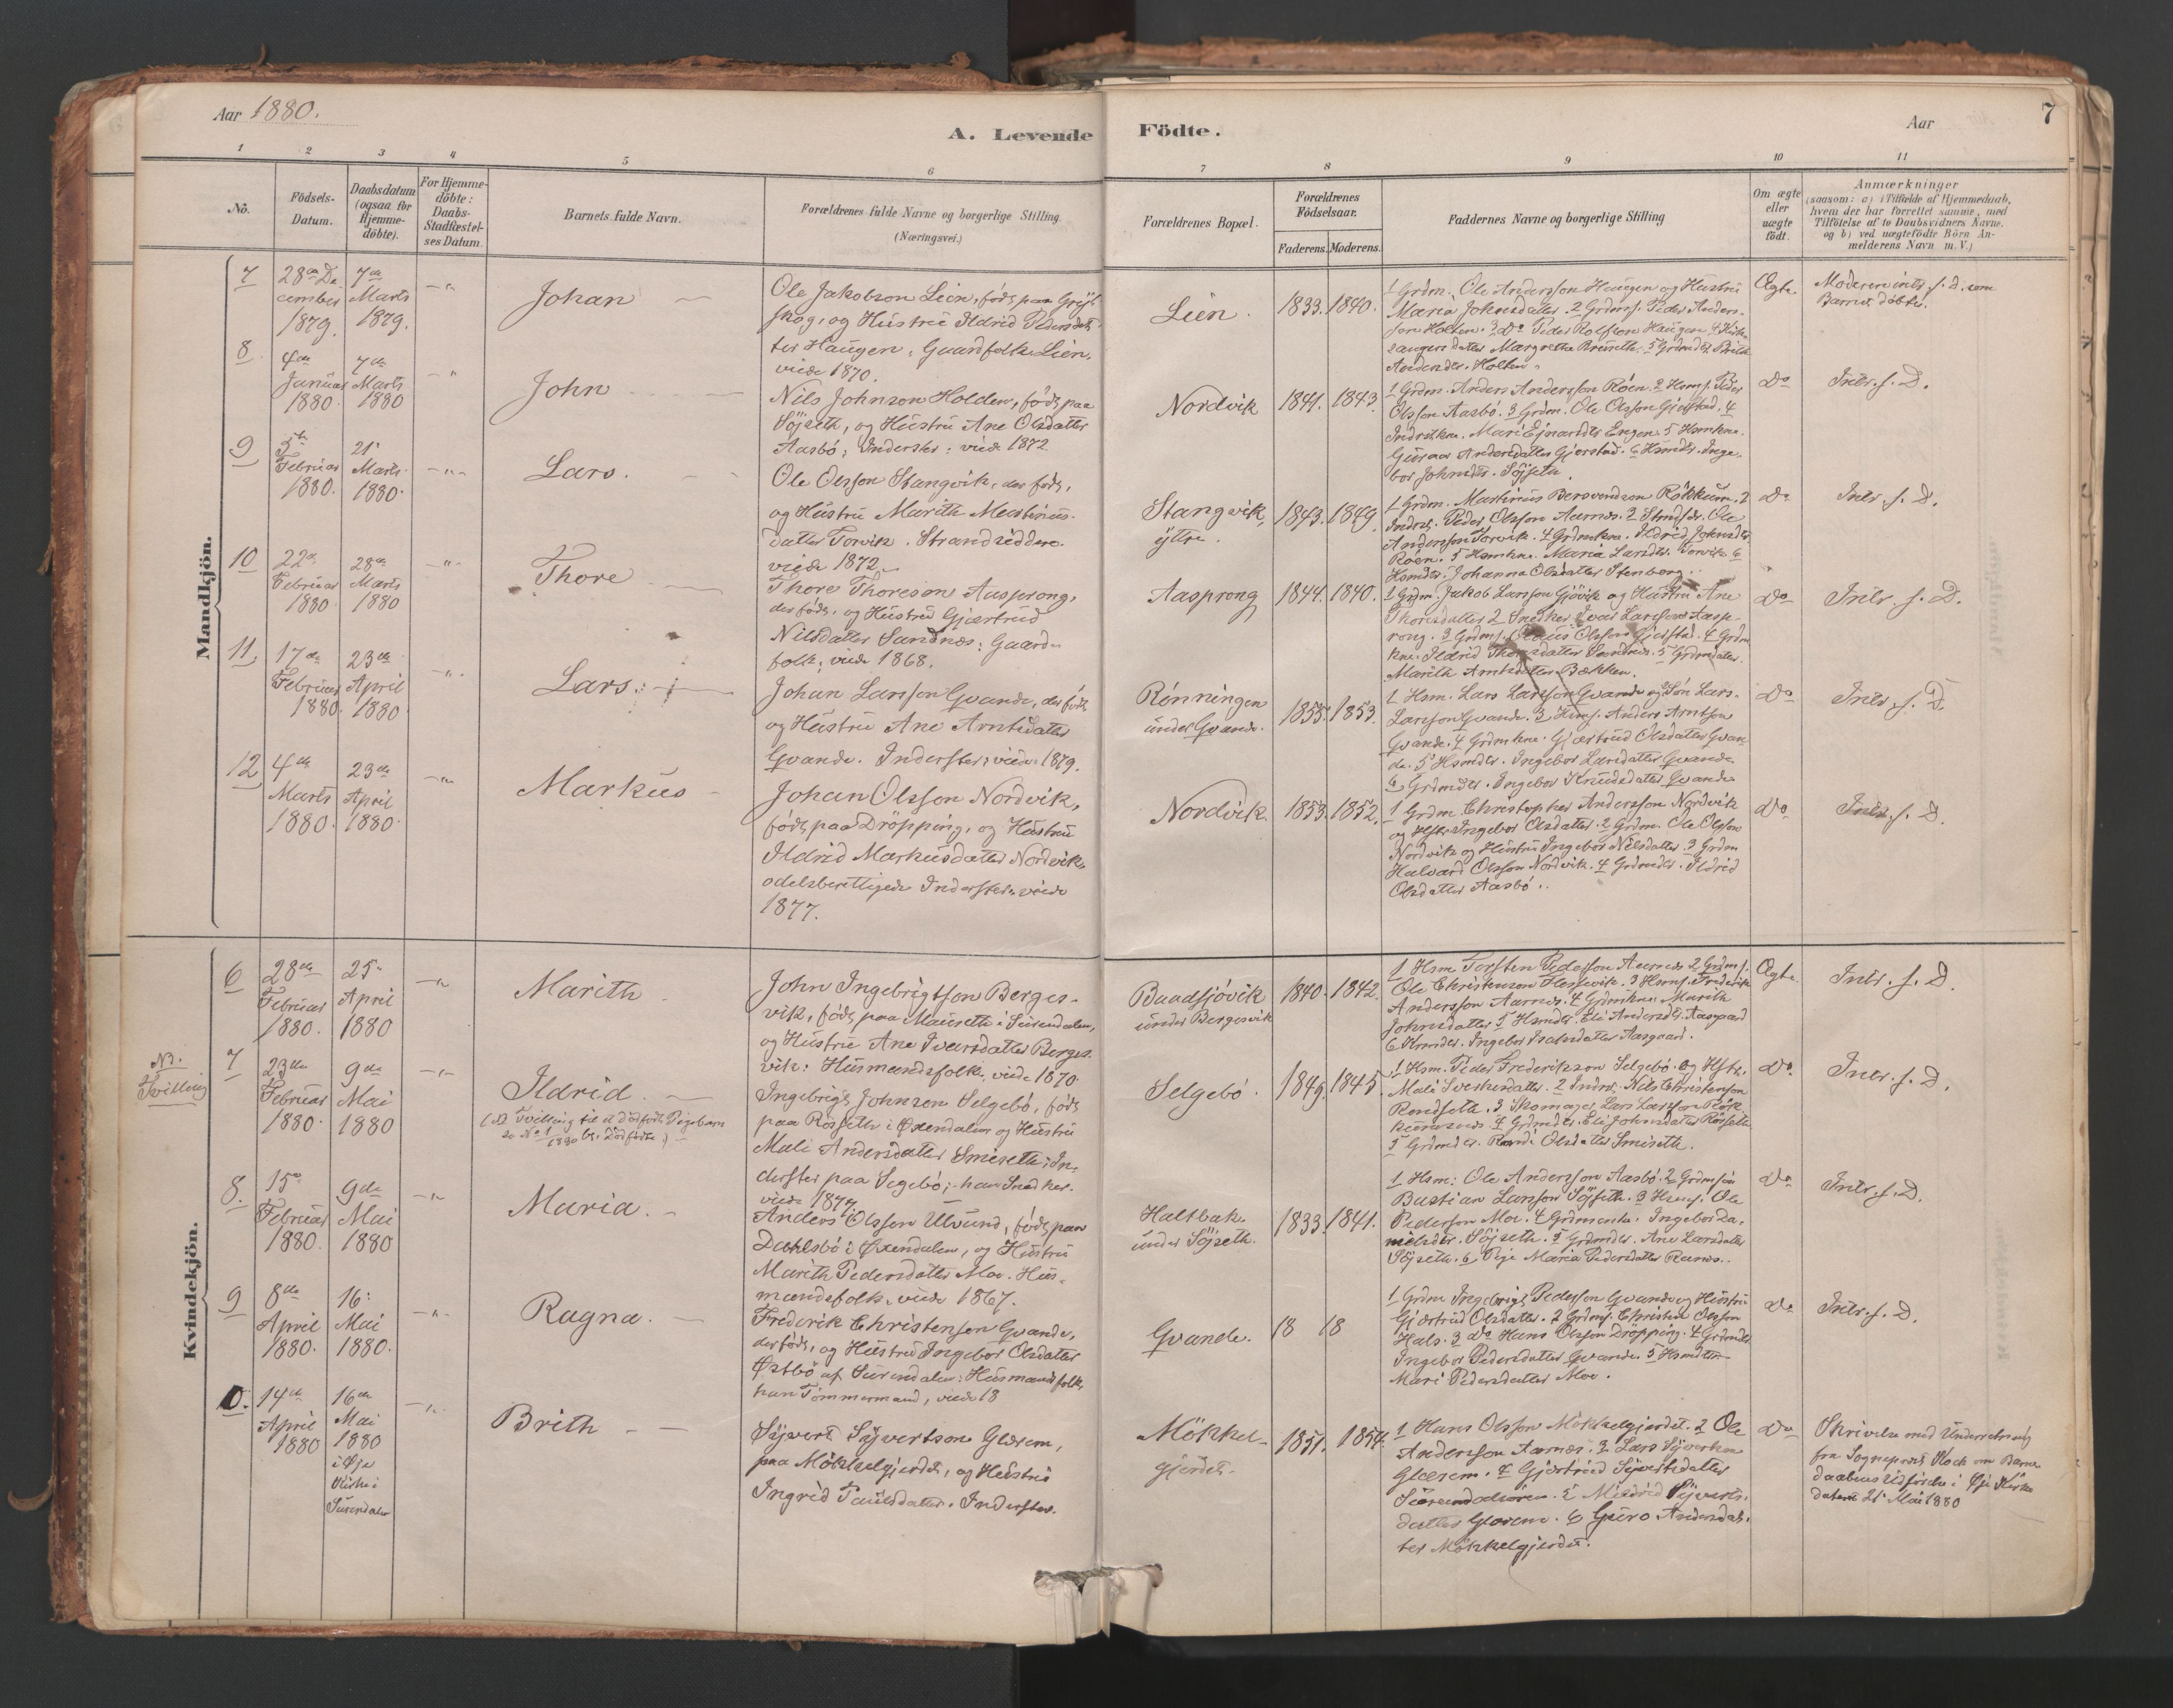 Aar 1880.
A. Levende Födte.
Aar
7
1 2 3 4 5 6 7 8 9 10 11
No.
Födsels-
Datum.
Daabsdatum
(ogsaa for
Hjemme-
döbte).
For Hjemme-
döbte:
Daabs-
Stadfæstel-
ses Datum.
Barnets fulde Navn.
Forældrenes fulde Navne og borgerlige Stilling.
(Næringsvei.)
Forældrenes Bopæl.
Forældrenes
Födselsaar.
Faderens. Moderens.
Faddernes Navne og borgerlige Stilling
Om ægte
eller
uægte
födt.
Anmærkninger
(saasom: a) i Tilfælde af Hjemmedaab,
hvem der har forrettet samme, med
Tilföielse af to Daabsvidners Navne.
og b) ved uægtefödte Börn An-
melderens Navn m. V.)
Mandkjön.
7
28de De
cember
1879.
7de
Marts
1879.
Johan
Ole Jakobson Lien, födt paa Grøt
skog, og Hustru Ildrid Pedersdat
ter Haugen, Gaardfolk Lien,
viede 1870.
Lien.
1833. 1840.
1 Grdm. Ole Andersson Haugen og Hustru
Maria Johnsdatter. 2 Grdms. Peder Anders-
son Holten. 3 Do Peder Rolfson Haugen 4 Kirk
sangerdatter Margrethe Bruseth. 5 Grdmdtr Brith
Andersdtr. Holten.
Ægte.
Moderen intr. s. D. som
Barnet döbtes.
8
4de
Januar
1880.
7de
Marts
1880
John
Nils Johnson Holden, födt paa
Söjseth, og Hustru Ane Olsdatter
Aasbö; Inderster; viede 1872
Nordvik
1841. 1843.
1 Grdm. Anders Andersson Röen. 2 Hsms. Peder
Olsson Aasbö. 3 Grdm. Ole Olsson Gjerstad. 4
Indrstkne. Mari Ejnarsdtr Engen. 5 Hsmkne.
Guraa Andersdatter Gjerstad. 6 Hsmdtr. Inge-
bor Johnsdtr. Söjseth.
Do
Intr. s. D.
9
5te
Februar
1880.
21.
Marts
1880.
Lars.
Ole Olsson Stangvik, der födt,
og Hustru Marith Mortinus-
datter Torvik. Strandsiddere.
viede 1872.
Stangvik
yttre.
1843. 1849.
1 Grdm. Martinus Bersvendson Rökkum. 2
Indrst. Peder Olsson Aarnes. 3 Strdsdr. Ole
Andersson Torvik. 4 Grdmkne. Ildrid Johnsdtr
Röen. 5 Hsmkne. Maria Larsdtr. Torvik 6
Hsmdtr. Johanna Olsdatter Stenberg.
Do
Intr. s. D.
10
22de
Februar
1880
28de
Marts
1880
Thore
Thore Thoreson Aasprong,
der födt, og Hustru Gjertrud
Nilsdatter Sandnes; Gaard-
folk; viede 1868.
Aasprong
1844. 1840.
1 Grdm. Jakob Larsson Gjövik og Hustru Ane
Thoresdatter 2 Snedker Ivar Larsson Aasp-
rong. 3 Grdms. Olsson Gjerstad. 4 Grdm
kne. Ildrid Thoresdatter Sandnes. 5 Grdmdatter.
Marith Arntsdatter Bækken.
Do
Intr. s. D.
11
17de
Februar
1880.
23de
April
1880
Lars.
Johan Larsson Qvande, der födt,
og Hustru Ane Arntsdatter
Qvande. Inderster; viede 1879.
Rönningen
under Qvande.
1855. 1853.
1 Hsm. Lars Larsson Qvande og 2 Sön Lars
Larsson Qvande. 3 Hsms. Anders Arntson
Qvande. 4 Grdmkne. Gjærtrud Olsdatter Qvan-
de. 5 Hsmdtr. Ingebor Larsdatter Qvande
6 Grdmdtr. Ingebor Knudsdatter Qvande
Do
Intr. s. D.
12
4de
Marts
1880.
23de
April
1880.
Markus
Johan Olsson Nordvik,
födt paa Dröpping, og Hustru
Ildrid Markusdatter Nordvik,
odelsberettigede Inderster, viede
1877.
Nordvik.
1853. 1852.
1 Grdm. Christopher Andersson Nordvik
og Hstr. Ingebor Olsdatter. 2 Grdm. Ole Olsson
Nordvik og Hustru Ingebor Nilsdatter. 3 Grdm
Halvard Olsson Nordvik. 4 Grdmdtr. Ildrid
Olsdatter Aasbö.
Do
Intr. s. D.
Kvindekjön.
6
28de
Februar
1880.
25.
April
1880
Marith
John Ingebrigtson Berges-
vik, födt paa Mauseth i Surendalen,
og Hustru Ane Ivarsdatter Berges-
vik: Husmandsfolk, viede 1870.
Baadsjövik
under Bergesvik
1840. 1842.
1 Hsm Torsten Pedersson Aarnes 2 Grdms.
Ole Christenson Hessevik. 3 Hsms. Frederik
Andersson Aarnes. 4 Grdmkne. Marith
Johnsdatter 5 Hsmdtr. Eli Andersdtr. Aasgaard
6 Hsmdtr. Ingebor Isaksdatter Aasgaard.
Ægte
Intr. s. D.
NB.
Tvilling
7
23de
Februar
1880.
9de
Mai
1880
Ildrid.
(NB Tvilling til et Dödfödt Pigebarn
se No 1 1880 bl. Dödfödte)
Ingebrigt Johnson Selgebö, födt
paa Rösseth i Öxendalen og Hustru
Mali Andersdatter Smiseth; In-
derster paa Segebö; han Snedker.
viede 1877.
Selgebö.
1849. 1845.
1 Hsm. Peder Frederikson Selgebö og Hstr.
Mali Sverkesdatter. 2 Indrst. Nils Christenson
Rendseth. 3 Skomager Lars Larsson Rök
kumsnes 4 Grdmdtr. Eli Johnsdatter Rösseth
5 Grdmdtr. Randi Olsdatter Smiseth.
Do.
Intr. s. D.
8.
15de
Februar
1880.
9de
Mai
1880
Maria.
Anders Olsson Ulvund, födt paa
Dahlsbö i Öxendalen, og Hustru
Marith Pedersdatter Moe. Hus-
mandsfolk, viede 1867.
Haltbak
under Söjseth.
1833. 1841.
1 Hsm: Ole Andersson Aasbö. 2 Grdmsön
Bastian Larsson Söjseth. 3 Hsms. Ole
Pederson Moe. 4 Grdmenke. Ingebor Da-
nielsdtr. Söjseth. 5 Grdmdtr. Ane Larsdatter
Söjseth. 6 Pige Maria Pedersdatter Ranes.
Do
Intr. s. D.
9
8de
April
1880.
16:
Mai
1880.
Ragna.
Frederik Christenson Qvande,
der födt, og Hustru Ingebor Olsdatter
Östbö af Surendalen: Husmandsfolk,
han Tömmermand, viede 18
Qvande.
18 18
1 Grdm Ingebrigt Pedersson Qvande og Hustru
Gjertrud Olsdatter. 2 Grdms. Christen Olsson
Hals. 3 do Hans Olsson Dröpping. 4 Grdmdtr
Ingebor Pedersdatter Qvande. 5 Hsmdtr
Mari Pedersdatter Moe.
Do
Intr. s. D.
10.
14de
April
1880
16de
Mai
1880
i Öje
Kirke i
Surendalen
Brith
Sjyvert Sjyvertson Glærem,
paa Mökkelgjerdet, og Hustru
Ingrid Paulsdatter. Inderster.
Mökkel-
gjerdet.
1851. 1854.
1 Hans Olsson Mökkelgjerdet. 2 Ole
Andersson Aarnes. 3 Lars Sjyvertson
Glærem. 4 Gjertrud Sjyvertsdatter
Surendalsören. 5 Mildrid Sjyverts-
datter Glærem. 6 Guro Andersdat-
ter Mökkelgjerdet.
Do
Skrivelse med Underretning
fra Sogneprest Koch om Barne-
daabens Udförelse i Öje Kirke
dateret 21. Mai 1880